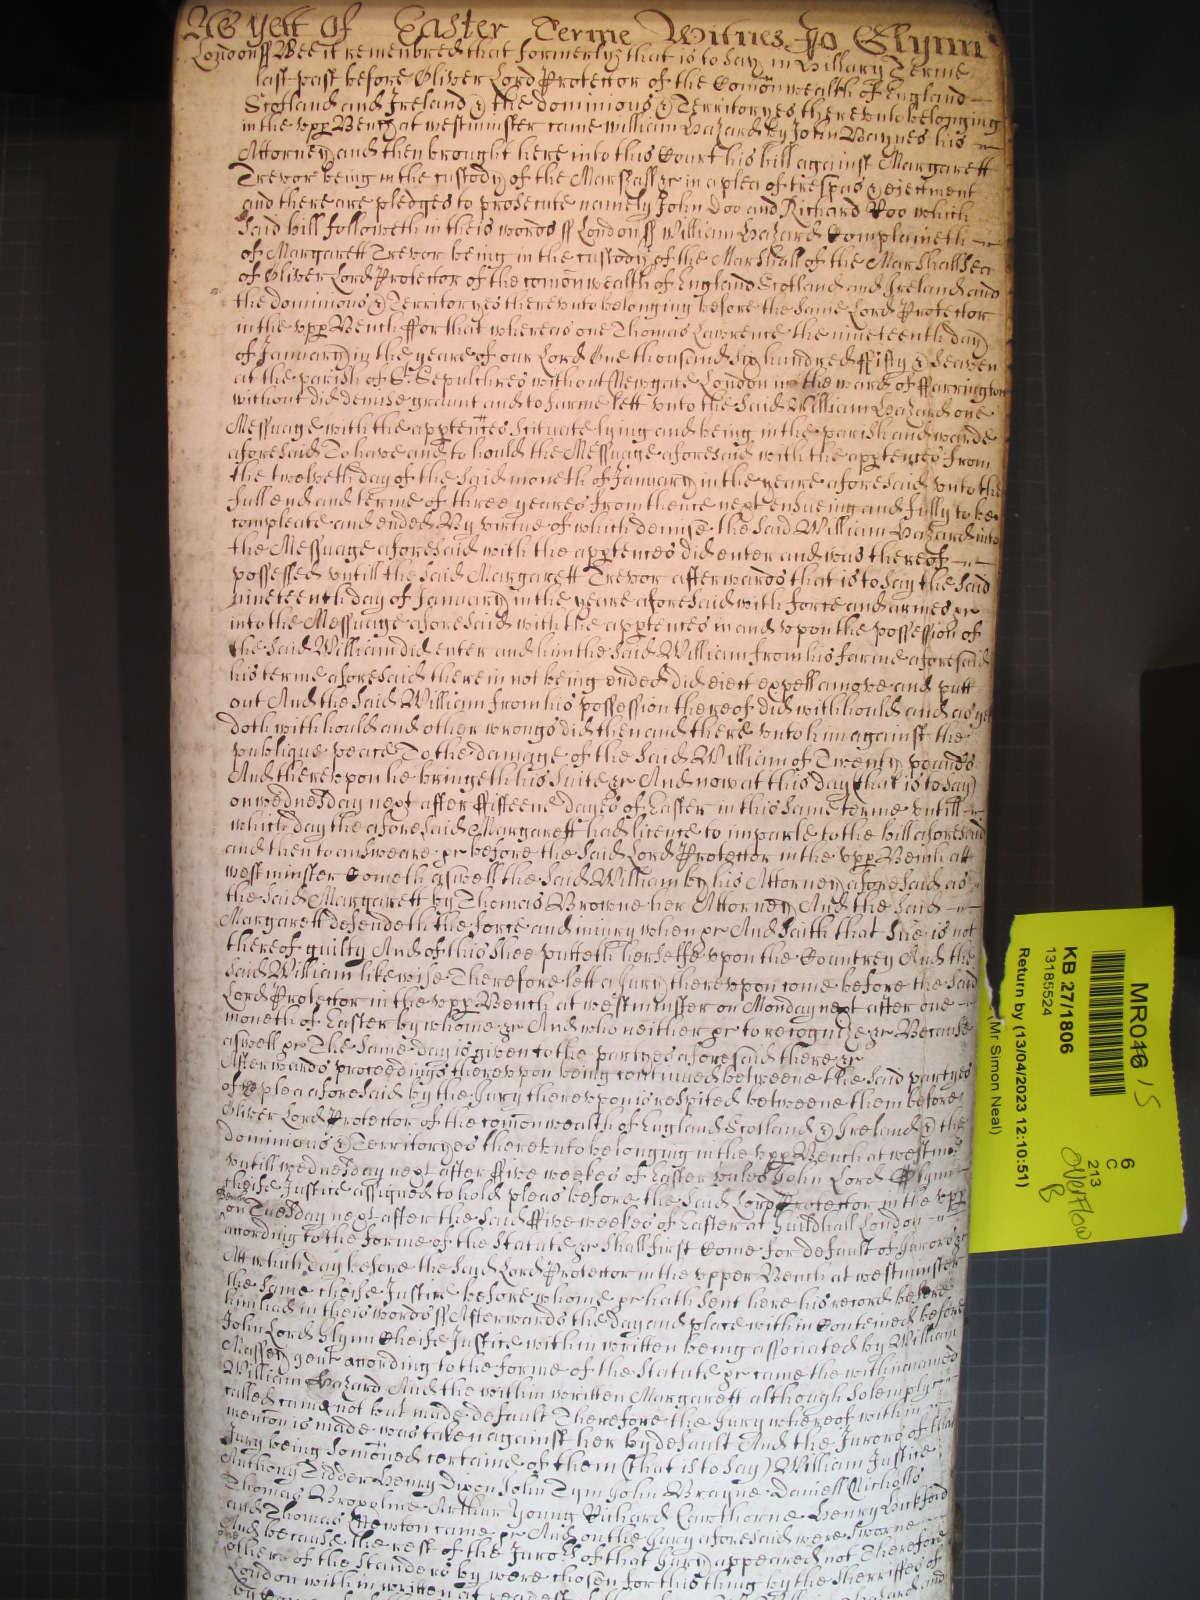 As yett of Easter Terme Witnes Jo Glynn
London ss Bee it remembred that formerly that is to say in Hillary Terme
last past before Oliver Lord Protector of the Comonwealth of England
Scotland and Ireland & the dominions & Territoryes thereunto belonging
in the upp Bench at westminster came William Hazard by John Baynes his
Attorney and then brought here into this Court his bill against Margarett
Trevor being in the custody of the Marshall &c in a plea of trespas & ejectment
and there are pledges to prosecute namely John Doo and Richard Roo which
said bill followeth in theis words ss London ss William Hazard Complaineth
of Margarett Trevor being in the custody of the Marshall of the Marshallsea
of Oliver Lord Protector of the comonwealth of England Scotland and Ireland and
the dominions & Territoryes thereunto belonging before the same Lord Protector
in the upp Bench ffor that whereas one Thomas Lawrence the nineteenth day
of January in the yeare of our Lord One thousand six hundred ffifty & seaven
at the parish of St Sepulchres without Newgate London in the ward of ffarringdon
without did demise graunt and to farme lett unto the said William Hazard one
Messuage with the apptences scituate lying and being in the parish and warde
aforesaid To have and to hould the Messuage aforesaid with the apptences from
the twelveth day of the said moneth of January in the yeare aforesaid unto the
full end and terme of three yeares from thence next ensueing and fully to be
compleate and ended By virtue of which demise the said William Hazard into
the Messuage aforesaid with the apptences did enter and was thereof
possessed untill the said Margarett Trevor afterwards that is to say the said
nineteenth day of January in the yeare aforesaid with force and armes &c
into the Messuage aforesaid with the apptences in and upon the possession of
the said William did enter and him the said William from his farme aforesaid
his terme aforesaid therein not being ended did eject expell amove and putt
out And the said William from his possession thereof did withhould and as yet
doth withhould and other wrongs did then and there unto him against the
publique peace To the damage of the said William of Twenty pounds
And thereupon he bringeth his suite &c And now at this day (that is to say)
on wednesday next after ffifteene dayes of Easter in this same terme untill
which day the aforesaid Margarett had licence to imparle to the bill aforesaid
and then to answeare &c before the said Lord Protector in the upp Bench att
westminster Cometh aswell the said William by his Attorney aforesaid as
the said Margarett by Thomas Browne her Attorney And the said
Margarett defendeth the force and injury when &c And saith that she is not
thereof guilty And of this shee putteth herselfe upon the Countrey And the
said William likewise Therefore lett a Jury thereupon come before the said
Lord Protector in the upp Bench at westminster on Monday next after one
moneth of Easter by whome &c And who neither &c to recognize &c Because
aswell &c The same day is given to the partyes aforesaid there &c
Afterwards proceedings thereupon being continued betweene the said partyes
of the plea aforesaid by the Jury thereupon is respited betweene them before
Oliver Lord Protector of the comonwealth of England Scotland & Ireland & the
dominions & Territoryes thereunto belonging in the upp Bench at westmr
untill wednesday next after ffive weekes of Easter unles John Lord Glynn
cheife Justice assigned to hold pleas before the said Lord Protector in the upp
Bench
on Tuesday next after the said ffive weekes of Easter at Guildhall London
according to the forme of the statute &c shall first Come for default of Jurors &c
Att which day before the said Lord Protector in the upper Bench at westminster
the same cheife Justice before whome &c hath sent here his record before
him had in theis words ss Afterwards the day and place within Conteined before
John Lord Glynn Cheife Justice within written being associated by William
Massey gent according to the forme of the Statute &c came the within named
William Hazard And the within written Margarett although solemply
called came not but made default Therefore the Jury whereof within
mencon is made was taken against her by default And the Jurors of that
Jury being somoned certaine of them (that is to say) William Justice
Anthony Tidder Henry Dixon John Tym John Brayne Daniell Nicholls
Thomas Bropoline Arthur Young Richard Cawthorne Henry Bickford
and Thomas Newton came &c And on the Jury aforesaid were sworne
And because the rest of the Jurors of that Jury appeared not Therefore
others of the standers by were chosen for this thing by the Sherriffes of
London within written at request of Hazard and
MR046 15
KB 27/1806
13185524
Return by (13/04/2023 12:10:51)
(Mr Simon Neal)
6
C
213
Overflow
B